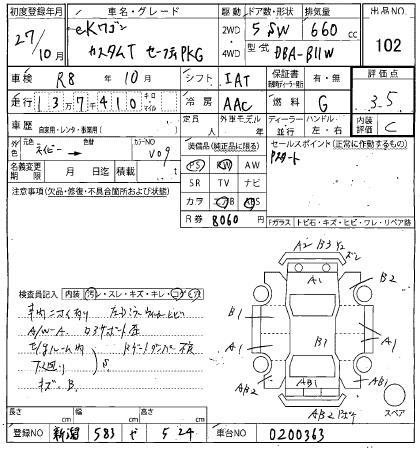 初度登録年月 車名・グレード 駆動 ドア数・形状 排気量 出品NO
27/10月 eKワゴン 2WD 4WD 5 SW 660 cc 102
カスタムT セーフティPKG 型式 DBA-B11W
車検 R8年10月 シフト IAT 保証書 有・無 評価点
走行 137410 キロ・マイル 冷房 AAC 燃料 G 3.5
車歴 自家用・レンタ・事業用( ) 定員 人 外車モデル 年 ディーラー 並行 ハンドル 左・右 内装評価 C
外色 元色 ネイビー 色替 カラーNO V09 装備品(純正品に限る) セールスポイント(正常に作動するもの)
名義変更期限 月 日迄 積載 t PS PW AW Pスタート
注意事項(欠品・修復・不具合箇所および状態) SR TV ナビ
カワ エアB ABS
R券 8060 円 Fガラス トビ石・キズ・ヒビ・ワレ・リペア跡
A2 B3 Y2
A1 B2
検査員記入 内装 汚レ・スレ・キズ・キレ・コゲ・穴
B1
A/W-A
A1 B1 A1
下廻り S
キズ、B.
AB2 AB1 AB1
AB2
スペア
長さ cm 幅 cm 高さ cm
登録NO 新潟 583 せ 524 車台NO 0200363